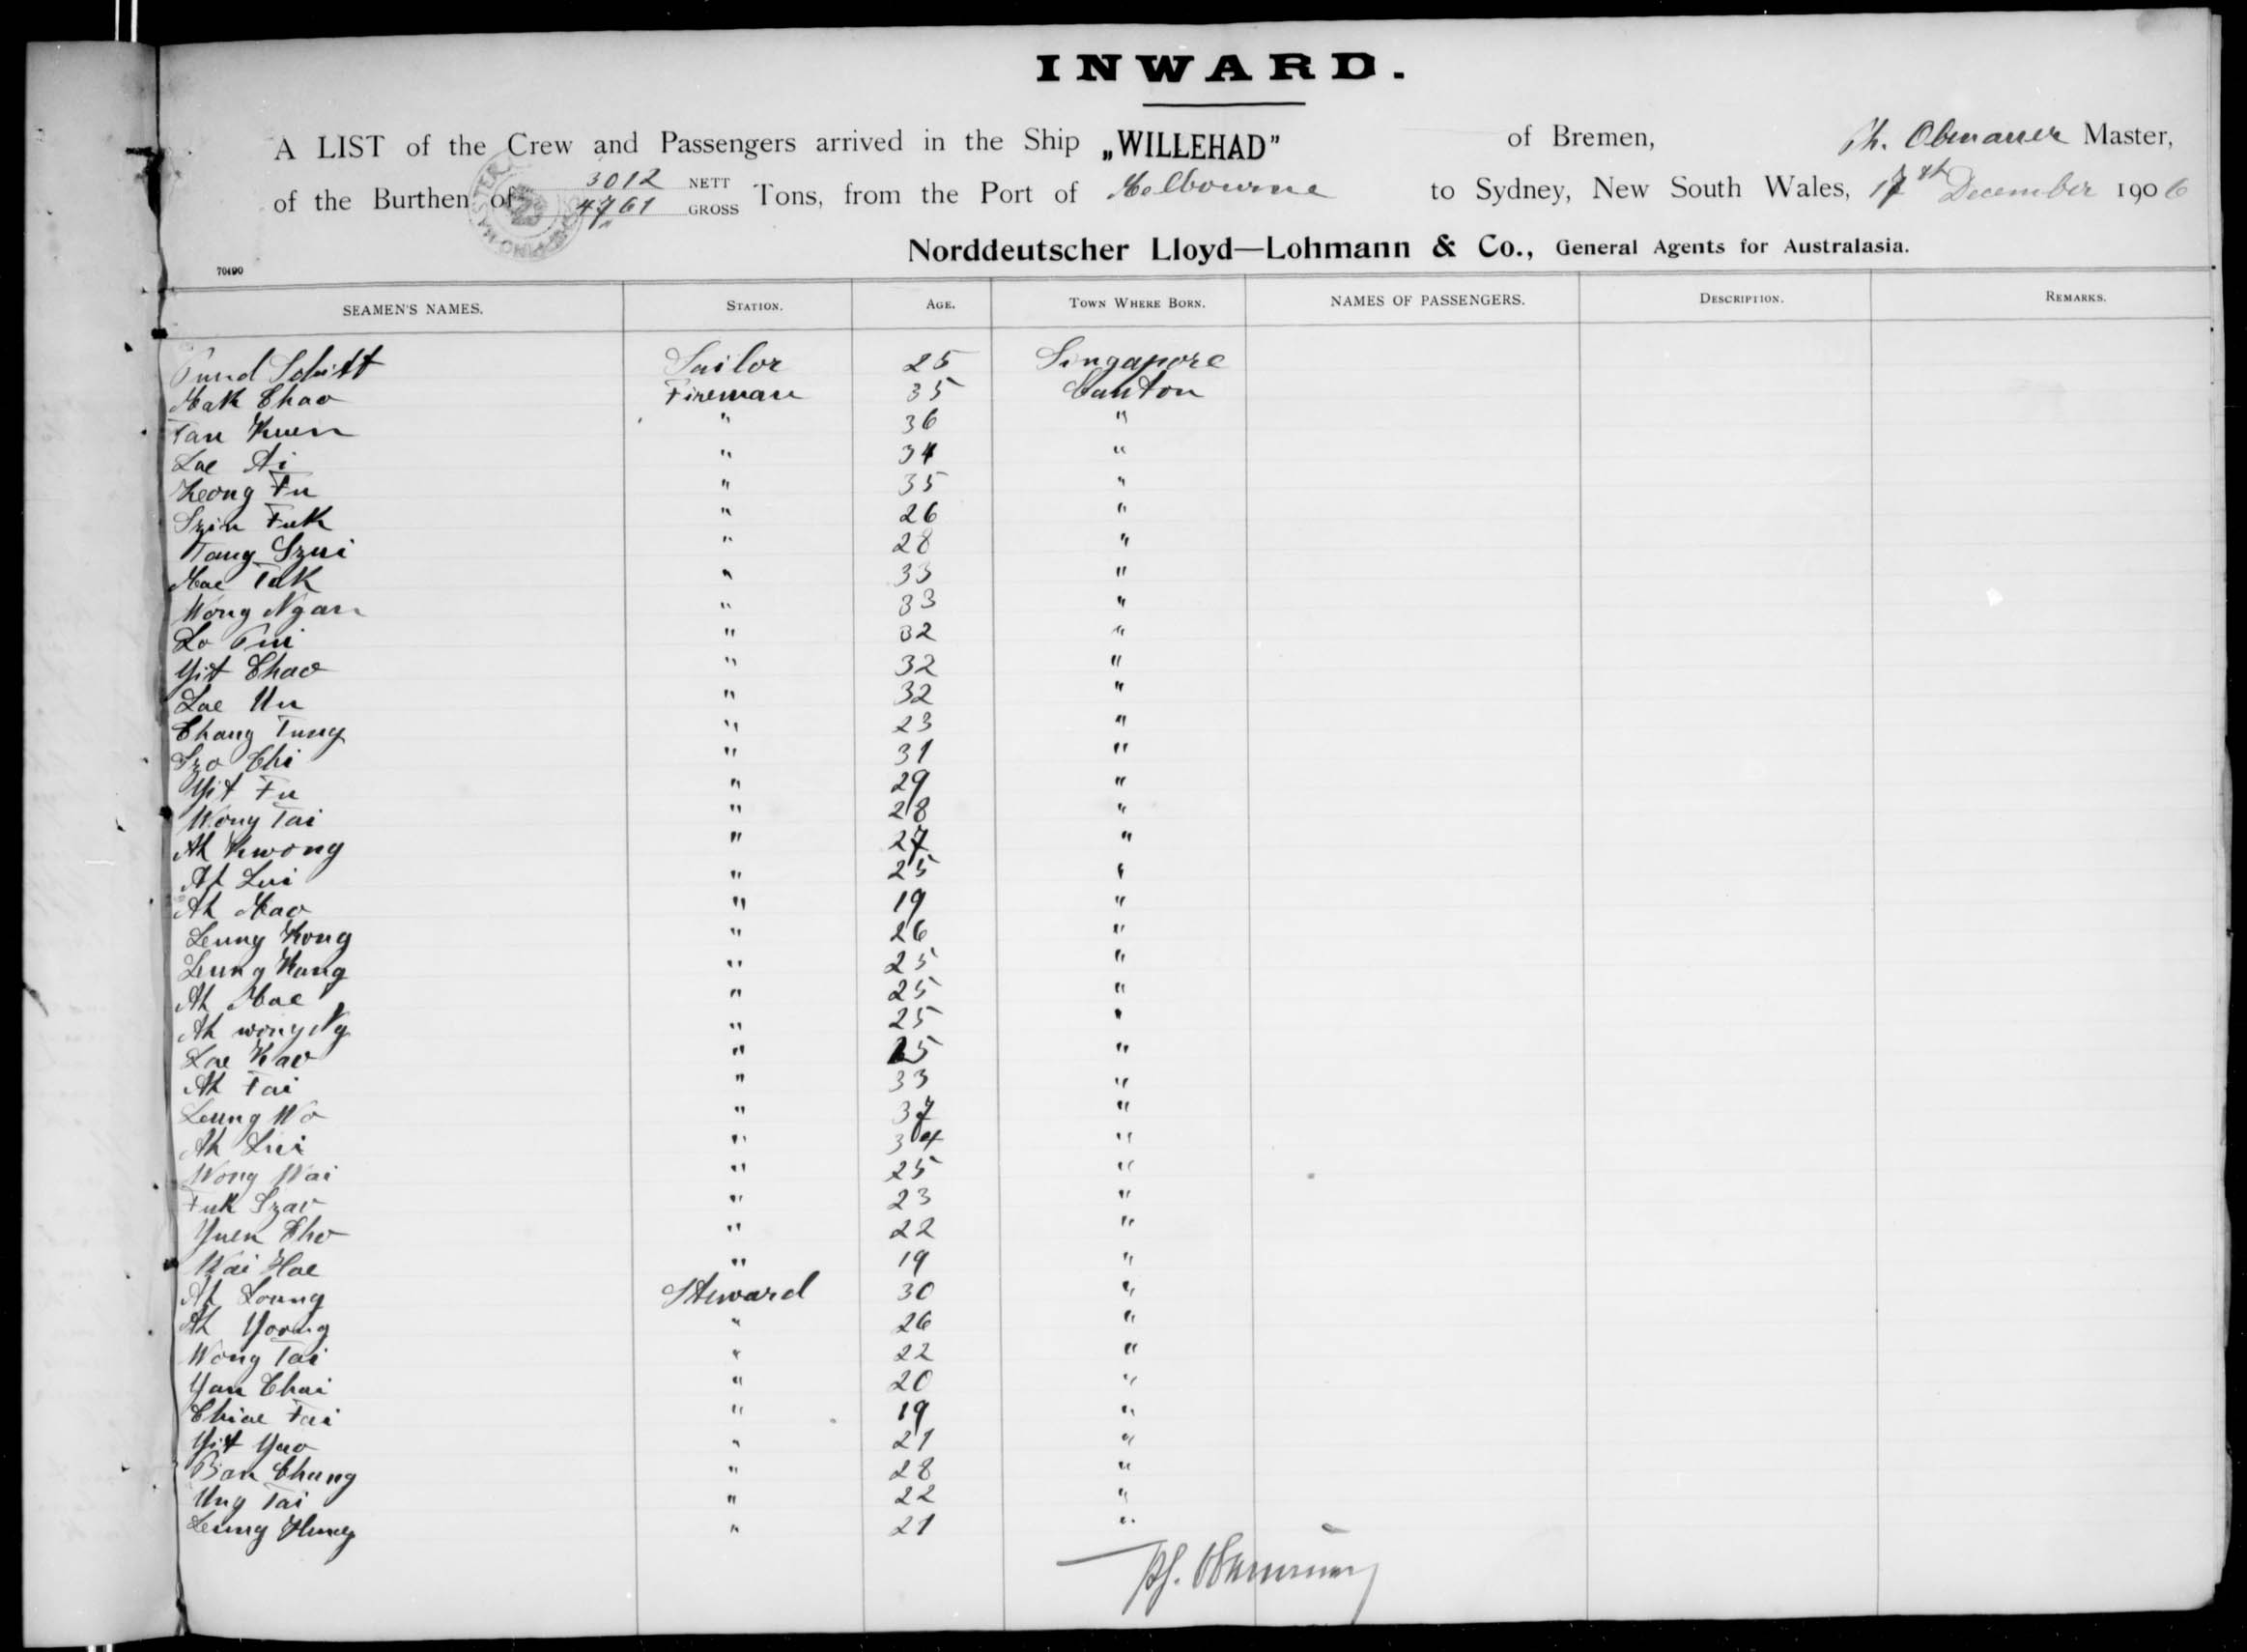 INWARD.
A LIST of the Crew and Passengers arrived in the Ship „WILLEHAD" of Bremen, Ph. Obenauer Master,
of the Burthen of 3012 NETT 4761 GROSS Tons, from the Port of Melbourne to Sydney, New South Wales, 17th December 1906
Norddeutscher Lloyd—Lohmann & Co., General Agents for Australasia.
70490
SEAMEN'S NAMES. STATION. AGE. TOWN WHERE BORN. NAMES OF PASSENGERS. DESCRIPTION. REMARKS.
Sailor 25 Singapore
Mak Chao Fireman 35 Canton
Tan Kuen " 36 "
Lae Ai " 34 "
Keong Fu " 35 "
Szin Fuk " 26 "
Tang Szui " 28 "
Mae Tuk " 33 "
Wong Ngan " 33 "
Lo Pui " 32 "
Yit Chao " 32 "
Lae Un " 32 "
Chang Tung " 23 "
Szo Chi " 31 "
Yit Fu " 29 "
Wong Tai " 28 "
Ah Kwong " 27 "
Ah Lui " 25 "
Ah Mao " 19 "
Leung Kong " 26 "
Leung Kang " 25 "
Ah Mae " 25 "
Ah wong Ng " 25 "
Lae Kao " 25 "
Ah Fai " 33 "
Leung Wo " 37 "
Ah Lui " 34 "
Wong Wai " 25 "
Fuk Szao " 23 "
Yuen Cho " 22 "
Wai Hae " 19 "
Ah Loung Steward 30 "
Ah Yoong " 26 "
Wong Tai " 22 "
Yan Chai " 20 "
Chiae Fai " 19 "
Yit Yao " 21 "
Ban Chung " 28 "
Ung Tai " 22 "
Leung Hung " 21 "
Ph. Obenauer